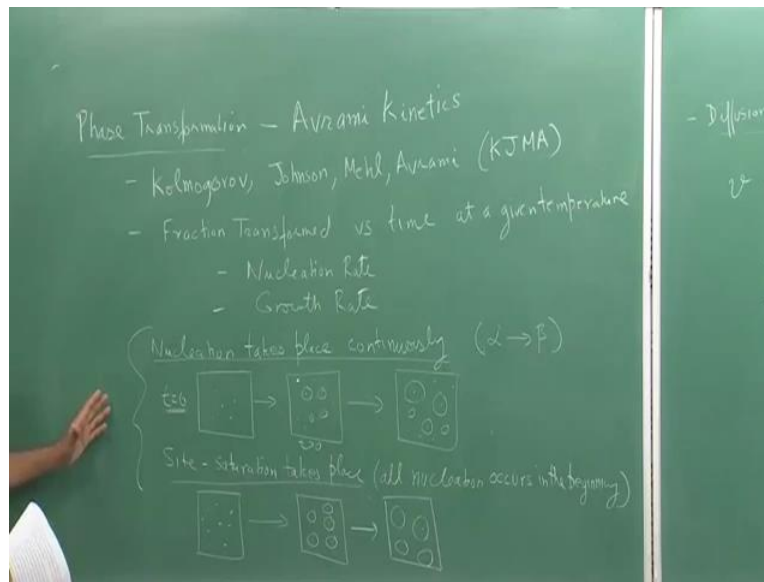 Phase Transformation – Avrami Kinetics
- Kolmogorov, Johnson, Mehl, Avrami (KJMA)
- Fraction Transformed vs time at a given temperature
- Nucleation Rate
- Growth Rate
Nucleation takes place continuously (α → β)
t=0
Site-saturation takes place (all nucleation occurs in the beginning)
- Diffusion
v